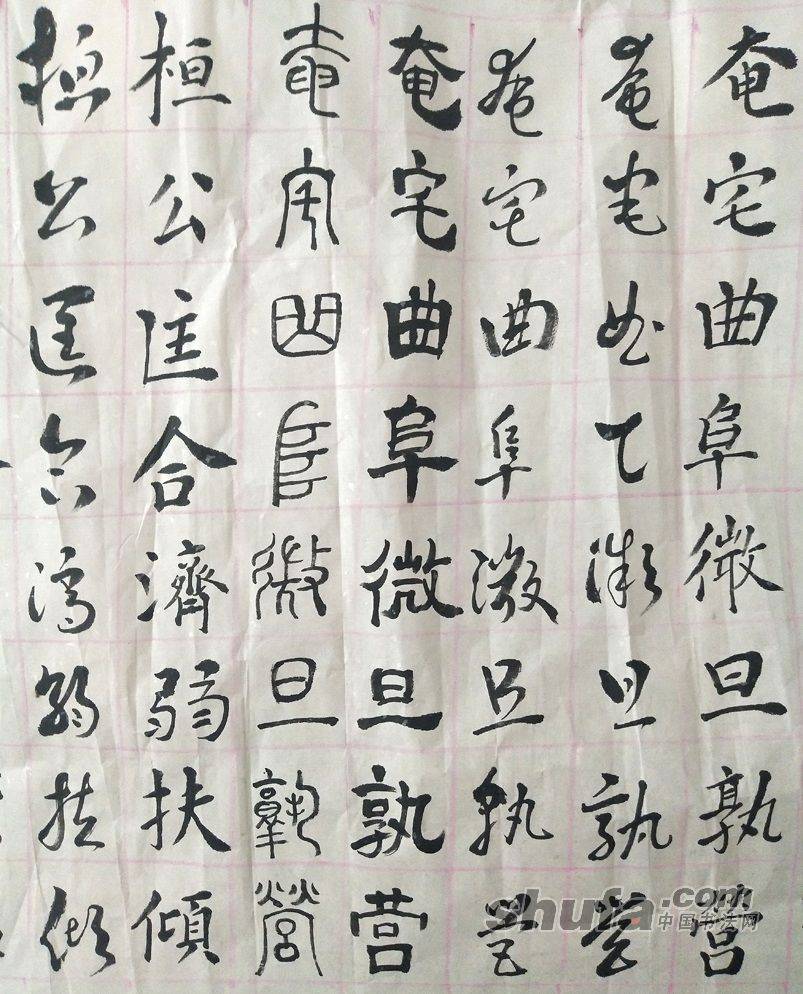 奄宅曲阜微旦孰營
奄宅曲阜微旦孰營
奄宅曲阜微旦孰營
奄宅曲阜微旦孰营
奄宅曲阜微旦孰營
桓公匡合濟弱扶傾
桓公匡合濟弱扶傾
shufa.com 中国书法网